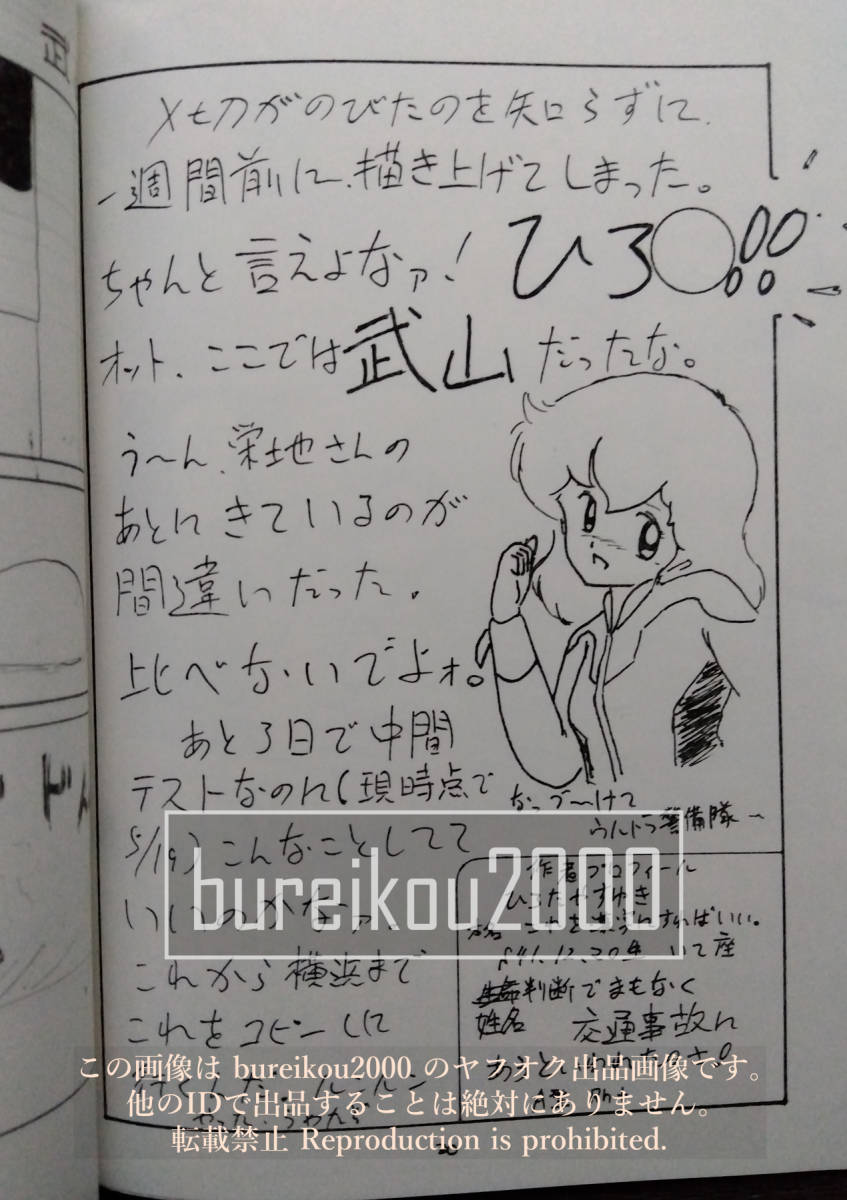 〆切がのびたのを知らずに、
一週間前に、描き上げてしまった。
ちゃんと言えよなァ! ひろ◯!!
オット、ここでは武山だったな。
う〜ん、栄地さんの
あとにきているのが
間違いだった。
比べないでよォ。
あと3日で中間
テストなのに(現時点で
5/19)こんなことしてて
いいのかなァ
これから横浜まで
これをコピーしに
なっづ〜けて
ウルトラ警備隊〜
作者プロフィール
ひろたやすゆき
S41.12.20生 いて座
姓名判断でまもなく
交通事故に
bureikou2000
この画像は bureikou2000 のヤフオク出品画像です。
他のIDで出品することは絶対にありません。
転載禁止 Reproduction is prohibited.
正
ド
20